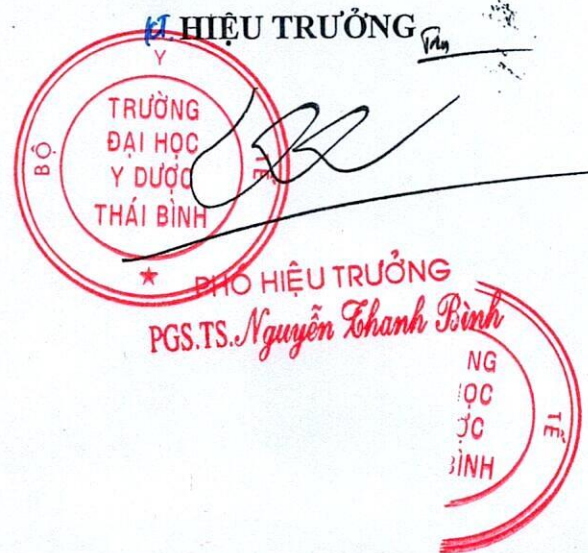 KT. HIỆU TRƯỞNG
BỘ Y TẾ
TRƯỜNG
ĐẠI HỌC
Y DƯỢC
THÁI BÌNH
PHÓ HIỆU TRƯỞNG
PGS.TS. Nguyễn Thanh Bình
NG
ỌC
ỢC
BÌNH
TẾ